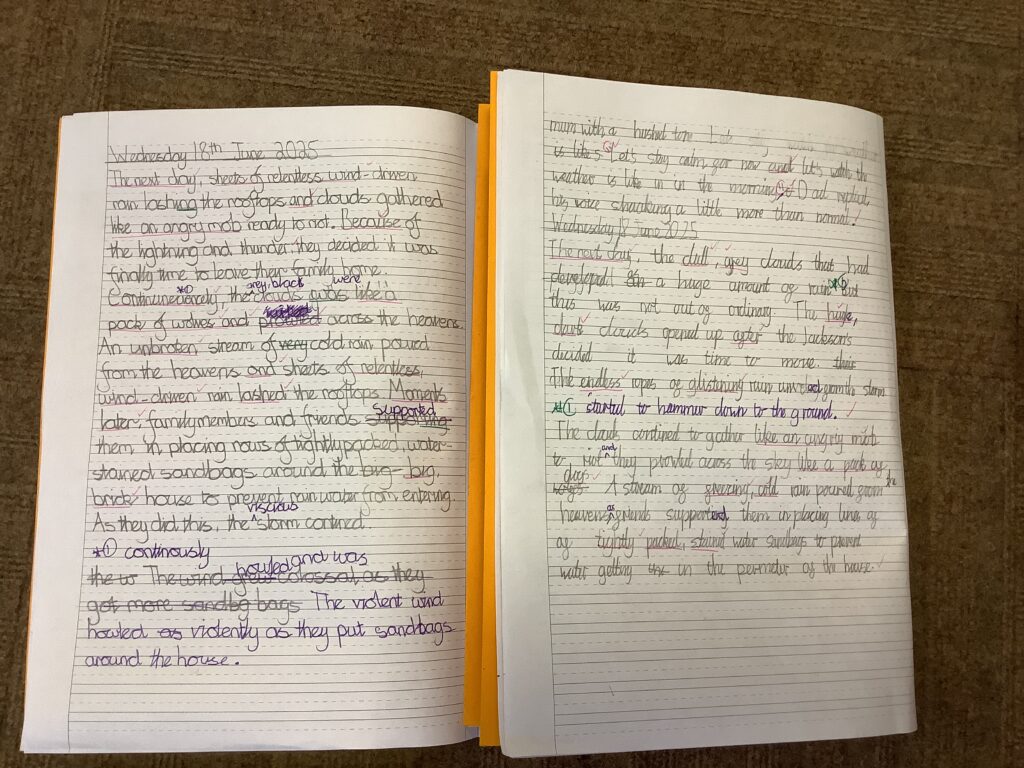 Wednesday 18th June 2025
The next day, sheets of relentless wind-driven
rain lashing the rooftops and clouds gathered
like an angry mob ready to riot. Because of
the lightning and thunder they decided it was
finally time to leave their family home.
grey, black were
Continuneiarely, the clouds was like a
pack of wolves and prowled across the heavens.
An unbroken stream of very cold rain poured
from the heavens and sheets of relentless,
wind-driven rain lashed the rooftops. Moments
later, family members and friends supporting
supported
them in placing rows of tightly packed, water-
stained sandbags around the big big,
brick house to prevent rain water from entering.
viscious
As they did this, the storm contined.
*① continously
howled and was
the w The wind grew colossal as they
got more sandbg bags The violent wind
howled as violently as they put sandbags
around the house.
mum with a hushed tone
is like's Let's stay calm for now and let's watch the
weather is like in in the morning" Dad replied,
his voice shacking a little more than normal.
Wednesday 18 June 2025
The next day, the dull, grey clouds that had
developed a huge amount of rain but
this was not out of ordinary. The huge,
dark clouds opened up after the Jackson's
decided it was time to move. their
The endless ropes of glistening rain storm
*① started to hammer down to the ground.
The clouds contined to gather like an angry
and
to riot they prowled across the sky like a pack of
dogs
wolfs. A stream of freezing, cold rain poured from the
heavens as friends supported them in placing lines of
of tightly packed, stained water sandbags to prevent
water getting in the perimeter of the house.